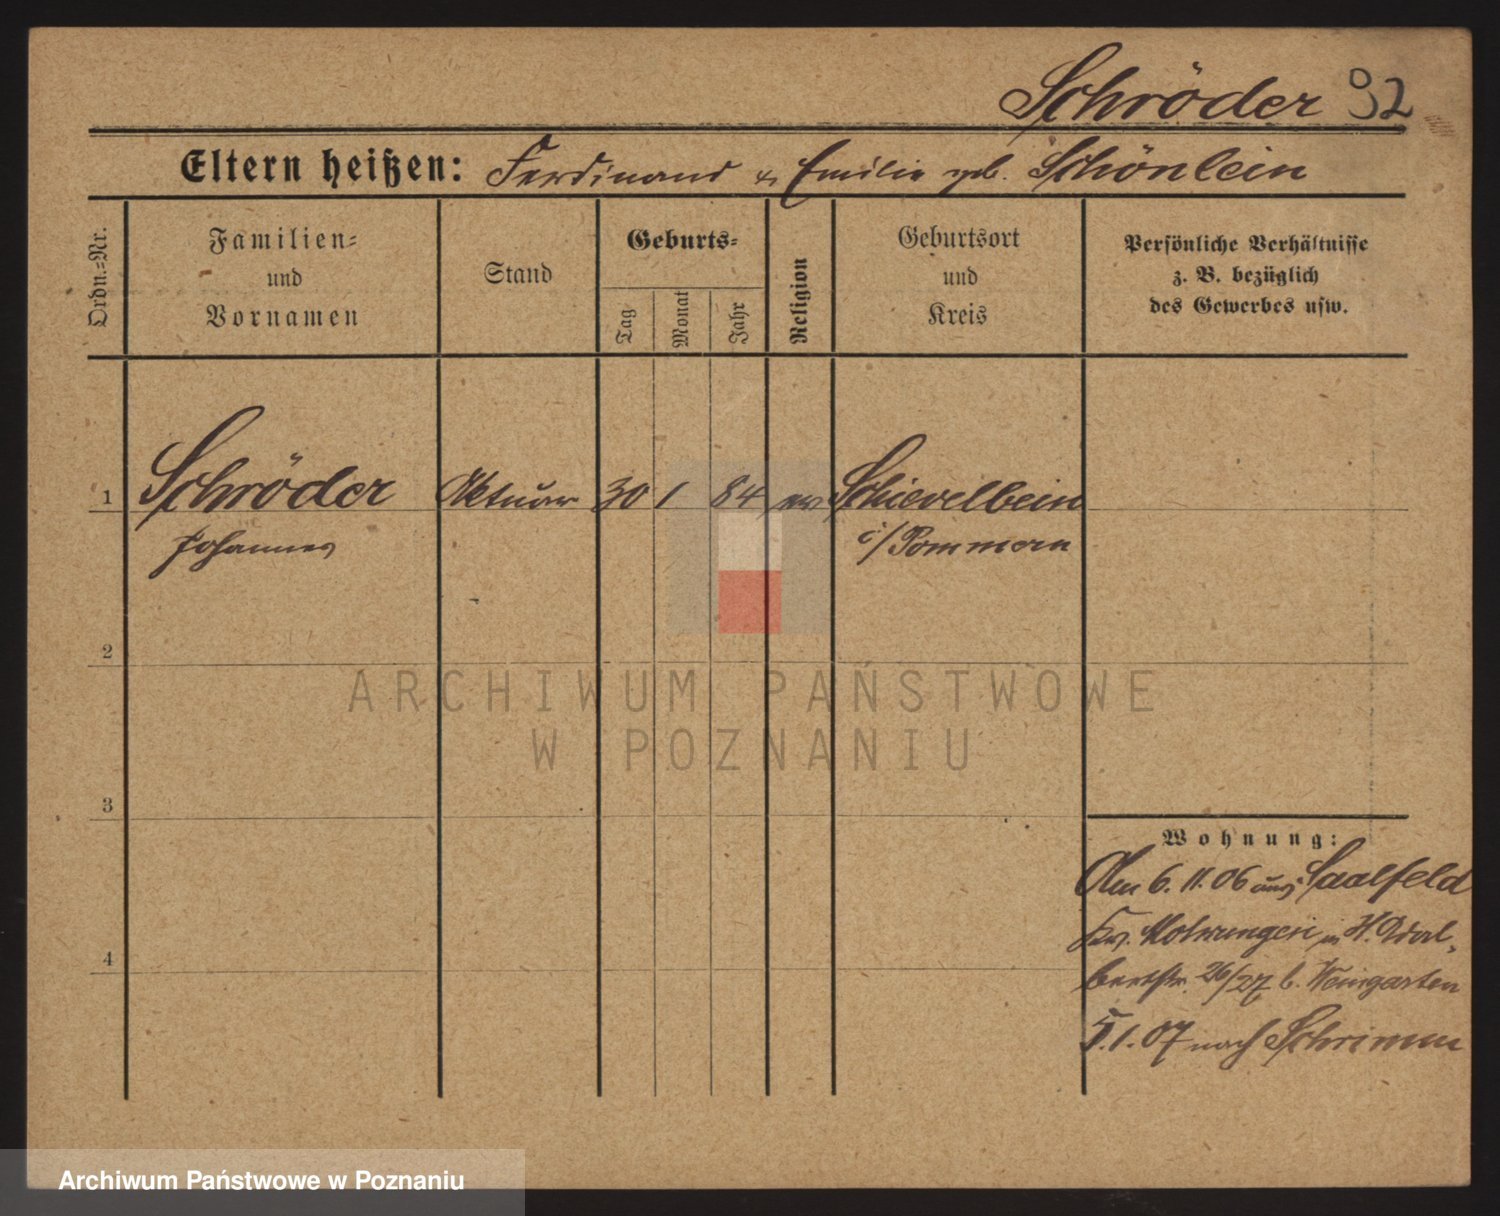 Schröder 92
Eltern heißen: Ferdinand & Emilie geb. Schönlein
Ordn.=Nr.
Familien=
und
Vornamen
Stand
Geburts=
Tag
Monat
Jahr
Religion
Geburtsort
und
Kreis
Persönliche Verhältnisse
z. B. bezüglich
des Gewerbes usw.
1 Schröder Aktuar 30 1 84 ev Schievelbein
Johannes i/Pommern
2
ARCHIWUM PAŃSTWOWE
W POZNANIU
3
Wohnung:
Am 6.11.06 aus Saalfeld
Kr. Mohrungen in
4
26/27 b. Weingarten
5.1.07 nach Schrimm
Archiwum Państwowe w Poznaniu